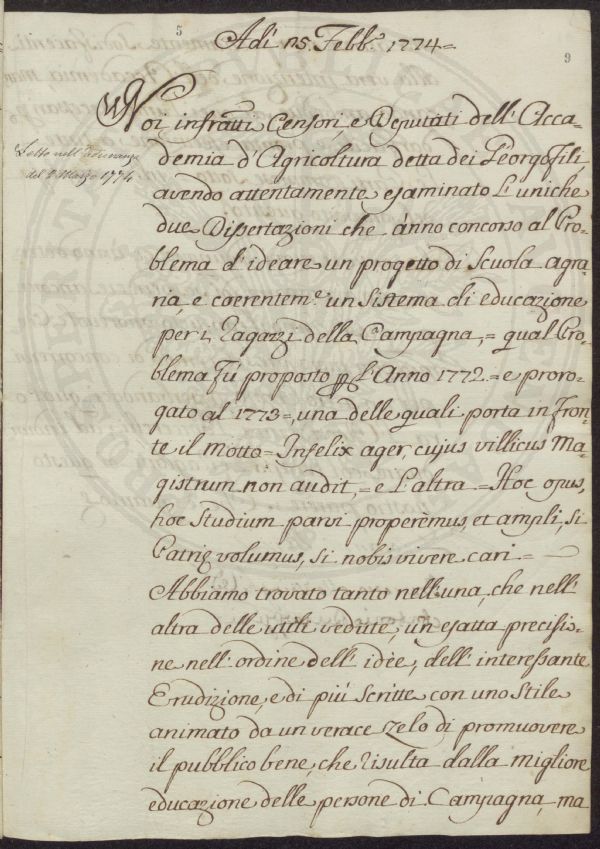 5
9
Adi 15. Febb.º 1774=
Letto nell'adunanza
del 2 Marzo 1774
Noi infratti Censori, e Deputati dell'Acca-
demia d'Agricoltura detta dei Georgofili,
avendo attentamente esaminato l'uniche
due Dissertazioni che ánno concorso al Pro-
blema d'ideare un progetto di Scuola agra-
ria, e coerentem.e un Sistema di educazione
per i Ragazzi della Campagna,= qual Pro-
blema fú proposto p l'Anno 1772.= e proro-
gato al 1773=, una delle quali porta in fron-
te il motto= Infelix ager, cujus villicus Ma-
gistrum non audit,= e l'altra= Hoc opus,
hoc Studium parvi properèmus, et ampli, si
Patrię volumus, si nobis vivere cari=
Abbiamo trovato tanto nell'una, che nell'
altra delle utili vedute, un esatta precisio-
ne nell'ordine dell'idèe, dell'interessante
Erudizione, e di piú scritte con uno Stile
animato da un verace zelo di promuovere
il pubblico bene, che risulta dalla migliore
educazione delle persone di Campagna, ma